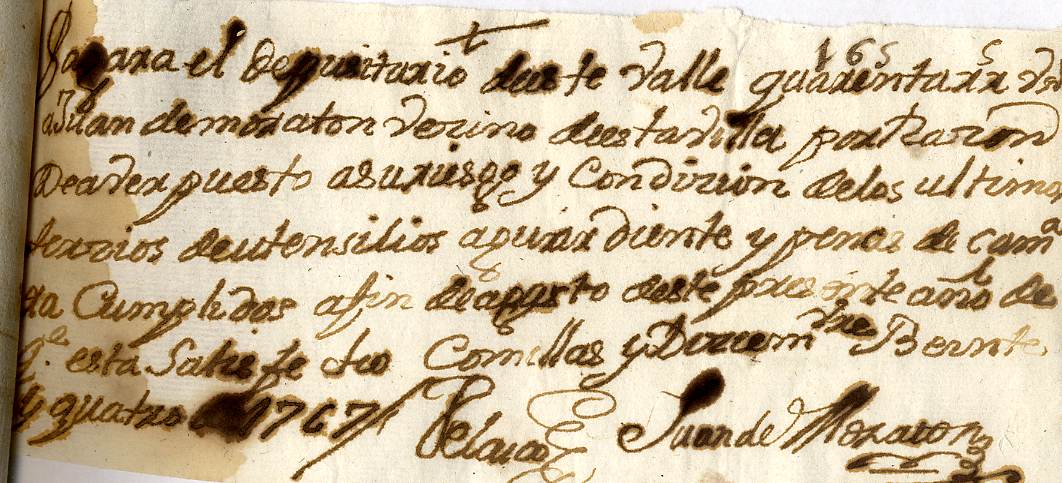 Pagara el Depusitario deeste Valle quarenta rrs Vn
165 s
a Juan de moraton Vezino deesta Villa por Razon
De aver puesto asu riesgo y Condizion delos ultimos
terzios de utensilios aguardiente y penas de camª
ra Cumplidos afin de agosto deeste presente año de
q.e esta Satisfe cho Comillas y Diziem.bre Beinte
y quatro de 1767
Pelaez Juan de Moraton